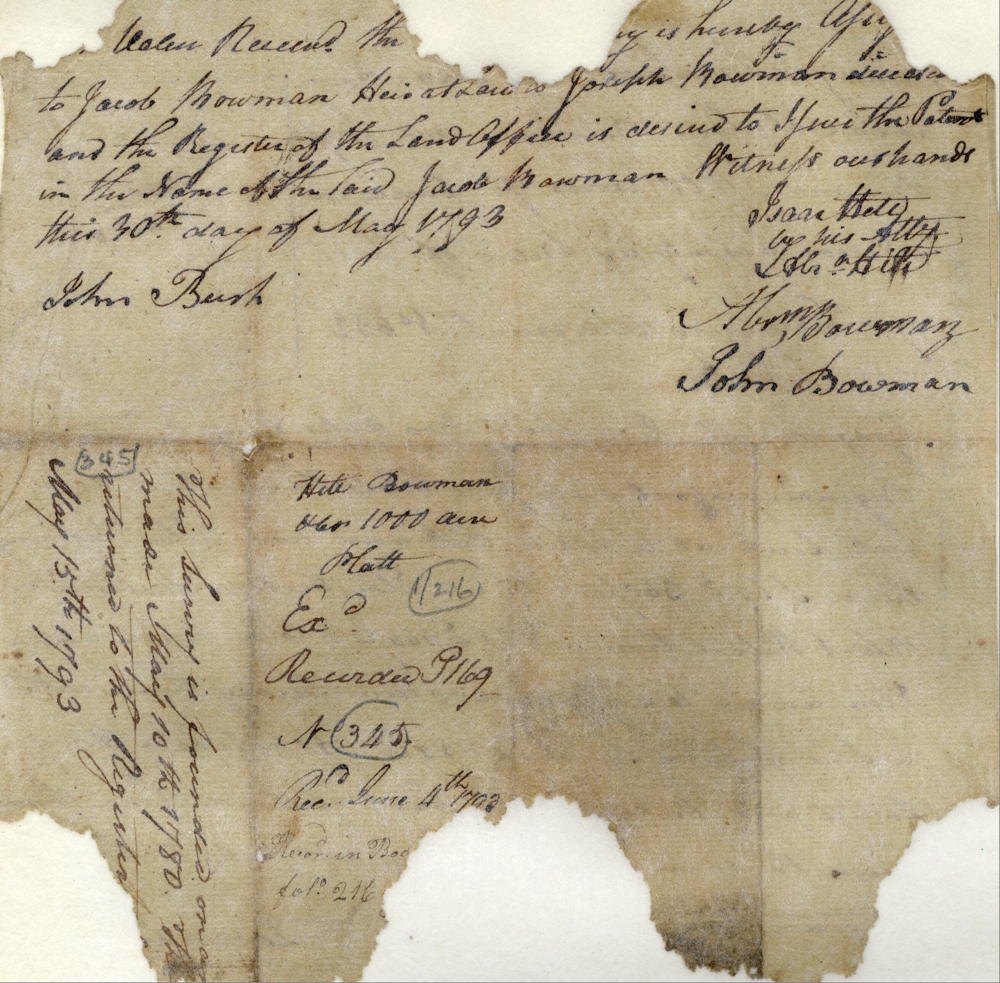 Value Received the    is hereby
to Jacob Bowman Heir at Law to Joseph Bowman deceased
and the Register of the Land Office is desired to Issue the Patent
in the Name of the said Jacob Bowman Witness our hands
this 30th day of May 1793
Isaac Hite
by his Atty
Abrm Hite
John Bush
Abrm Bowman
John Bowman
345
This Survey is founded on a
made May 10th 1780. The
returned to the Register
May 15th 1793
Hite Bowman
&c 1000 acres
Platt
1/216
Exd
Recorded P 169
N 345
Recd. June 4th 1793
Record. in Boo
folo 216